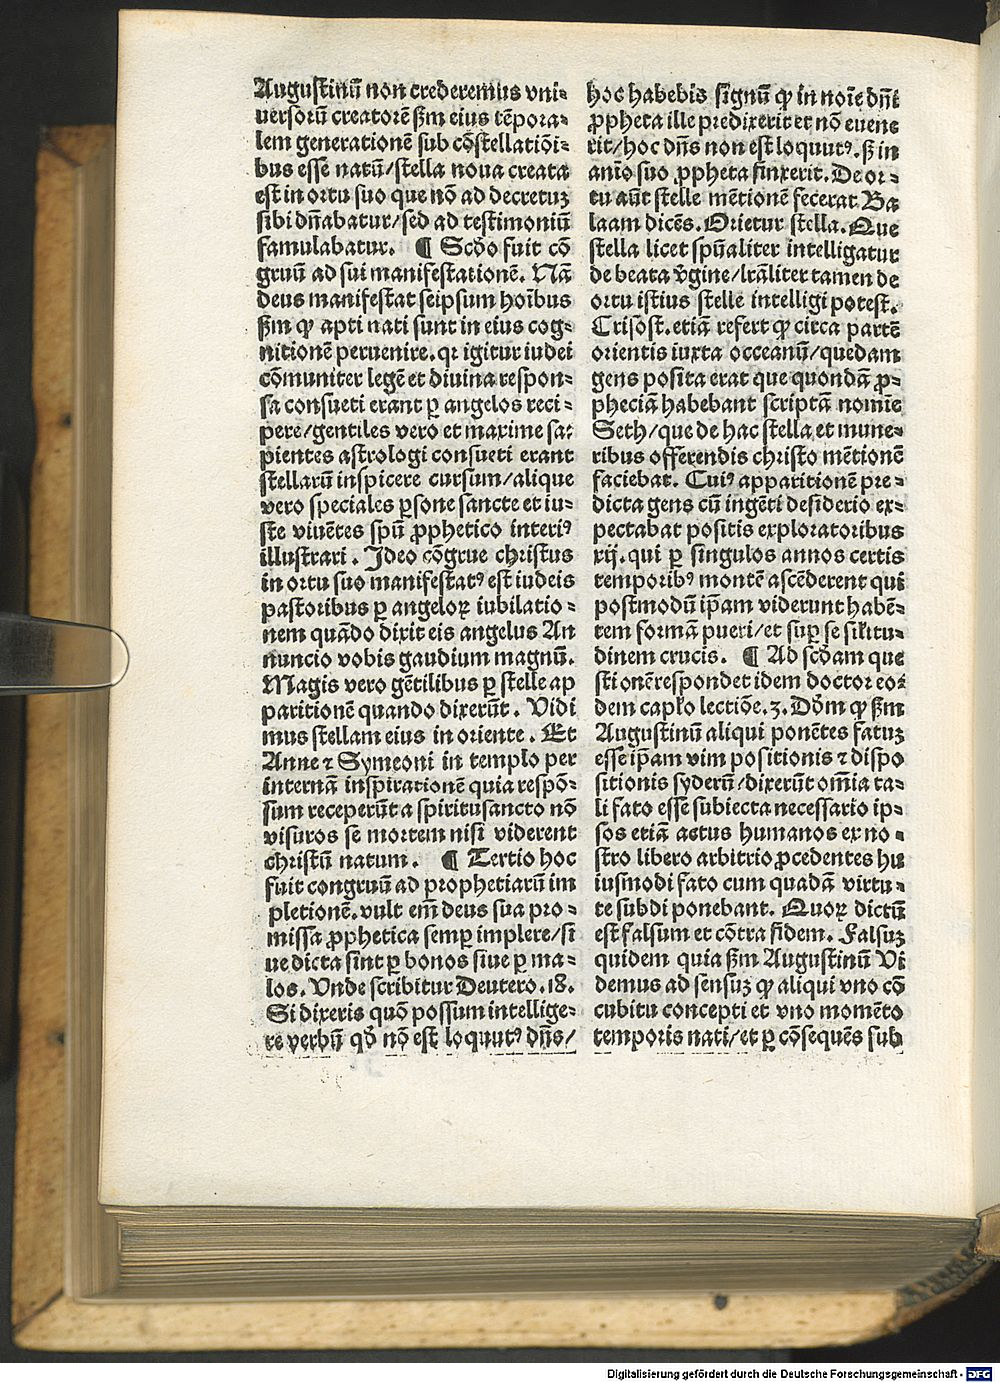 Augustinū non crederemus vni-
uersorū creatorē ẜm eius tēpora-
lem generationē sub cōstellatiōi-
bus esse natū/stella noua creata
est in ortu suo que nō ad decretuʒ
sibi dn̄abatur/sed ad testimoniū
famulabatur. ¶ Scd̓o fuit cō
gruū ad sui manifestationē. Nā
deus manifestat seipsum hoībus
ẜm ꝙ apti nati sunt in eius cog-
nitionē peruenire. qꝛ igitur iudei
cōmuniter legē et diuina respon-
sa consueti erant ꝑ angelos reci-
pere/gentiles vero et maxime sa-
pientes astrologi consueti erant
stellarū inspicere cursum/alique
vero speciales ꝑsone sancte et iu-
ste viuētes spū ꝓphetico interiꝰ
illustrari. Ideo cōgrue christus
in ortu suo manifestatꝰ est iudeis
pastoribus ꝑ angeloꝝ iubilatio-
nem quādo dixit eis angelus An
nuncio vobis gaudium magnū.
Magis vero gētilibus ꝑ stelle ap
paritionē quando dixerūt. Vidi
mus stellam eius in oriente. Et
Anne ⁊ Symeoni in templo per
internā inspirationē quia respō-
sum receperūt a spiritusancto nō
visuros se mortem nisi viderent
christū natum. ¶ Tertio hoc
fuit congruū ad prophetiarū im
pletionē. vult em̄ deus sua pro-
missa ꝓphetica semꝑ implere/si
ue dicta sint ꝑ bonos siue ꝑ ma-
los. Vnde scribitur Deutero. 18.
Si dixeris quō possum intellige-
re verbū qd̓ nō est loquutꝰ dn̄s/
hoc habebis signū ꝙ in noīe dn̄i
ꝓpheta ille predixerit et nō euene
rit/hoc dn̄s non est loquutꝰ. ẜ in
anīo suo ꝓpheta finxerit. De or-
tu aūt stelle mētionē fecerat Ba
laam dicēs. Orietur stella. Que
stella licet spūaliter intelligatur
de beata v̓gine/lrāliter tamen de
ortu istius stelle intelligi potest.
Crisost. etiā refert ꝙ circa partē
orientis iuxta occeanū/quedam
gens posita erat que quondā ꝓ-
pheciā habebant scriptā nomīe
Seth/que de hac stella et mune-
ribus offerendis christo mētionē
faciebat. Cuiꝰ apparitionē pre-
dicta gens cū ingēti desiderio ex-
pectabat positis exploratoribus
xij. qui ꝑ singulos annos certis
temporibꝰ montē ascēderent qui
postmodū ip̄am viderunt habē-
tem formā pueri/et suꝑ se sil̓itu-
dinem crucis. ¶ Ad scd̓am que
stionē respondet idem doctor eo-
dem cap̓lo lectiōe. 3. Dd̓m ꝙ ẜm
Augustinū aliqui ponētes fatuʒ
esse ip̄am vim positionis ⁊ dispo
sitionis syderū/dixerūt om̄ia ta-
li fato esse subiecta necessario ip-
sos etiā actus humanos ex no-
stro libero arbitrio ꝓcedentes hu
iusmodi fato cum quadā virtu-
te subdi ponebant. Quoꝝ dictū
est falsum et cōtra fidem. Falsuʒ
quidem quia ẜm Augustinū Vi
demus ad sensuʒ ꝙ aliqui vno cō
cubitu concepti et vno momēto
temporis nati/et ꝑ cōsequēs sub
Digitalisierung gefördert durch die Deutsche Forschungsgemeinschaft - DFG